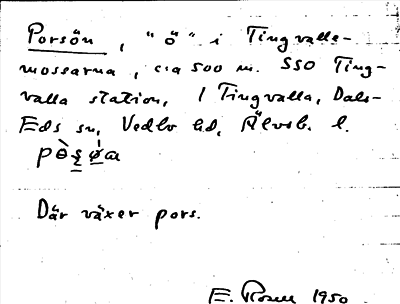 Porsön, "ö" i Tingvalla-
mossarna, c:a 500 m. SSO Ting-
valla station, 1 Tingvalla, Dals-
Eds sn, Vedbo hd, Älvsb. l.
Där växer pors.
E. Rosell 1950